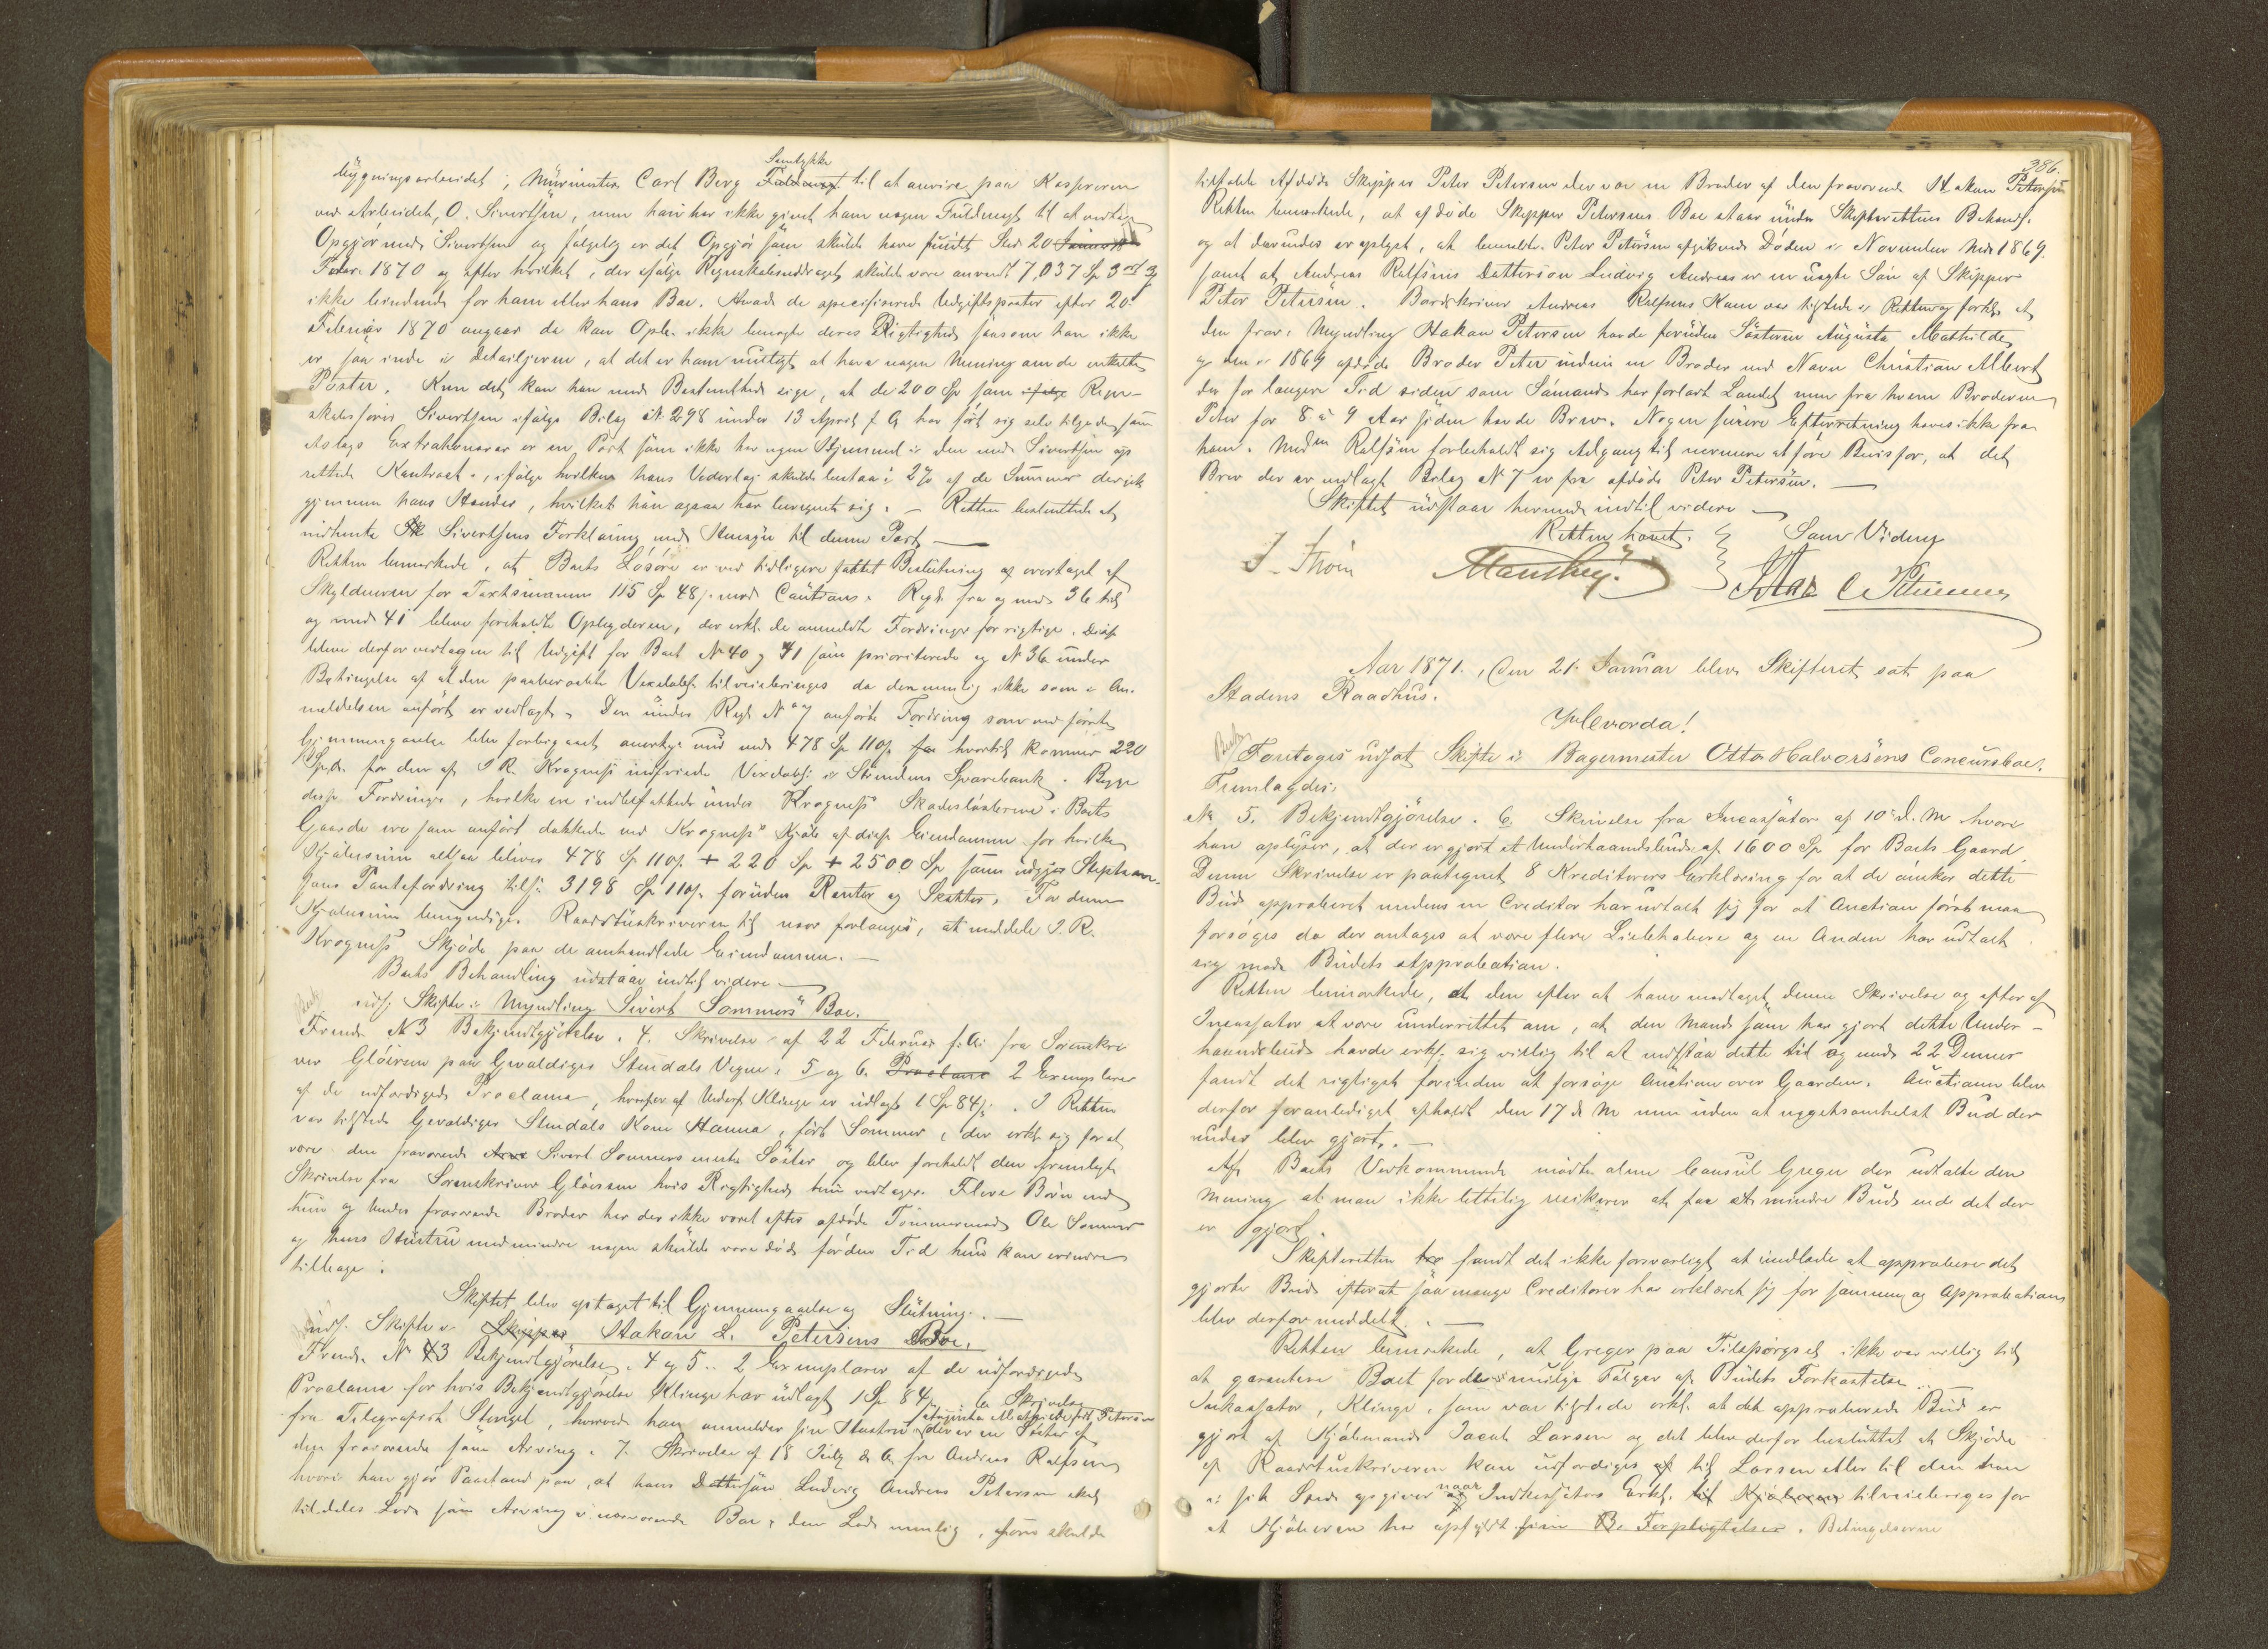 Samtykke
bygningsarbeidet, Muurmester Carl Berg Fuldmagt til at anvise paa Kassereren
ved Arbeidet, O. Sivertsen, men han har ikke givet ham nogen Fuldmagt til at vedtage
Opgjör med Sivertsen og fölgelig er det Opgjör som skulde have fundet Sted 20 Januar
Febr. 1870 og efter hvilket, der ifölge Regnskabsuddraget skulde være anvendt 7,037 Sp 3
ikke bindende for ham eller hans Boe. Hvad de specifiserede Udgiftsposter efter 20
Februar 1870 angaar da kan Opb. ikke benegte deres Rigtighed saasom han ikke
er saa inde i Detailjerne, at det er ham muligt at have nogen Mening om de enkelte
Poster. Kun det kan han med Bestemthed sige, at de 200 Sp som ifölge Regn-
skabsförer Sivertsen ifölge Bilag N. 298 under 13 April f A har fört sig selv tilgode som
Aslags Extrahonorar er en Post som ikke har nogen Hjemmel i den med Sivertsen op
rettede Kontract, ifölge hvilken hans Vederlag skulde bestaa i 2% af de Summer der gik
gjennem hans Hænder, hvilket han ogsaa har beregnet sig. - Retten besluttede at
indhente Sivertsens Forklaring med Hensyn til denne Post
Retten bemærkede, at Boets Lösöre er ved tidligere fattet Beslutning overtaget af
Skyldneren for Taxtsummen 115 Sp 48 s. mod Caution. Regl. fra og med 36 til
og med 41 bleve foreholdte Opbyderen, der erkl. de anmeldte Fordringer for rigtige. Disse
bleve derfor vedtagen til Udgift for Boet N 40 og 41 som prioriterede og N 36 under
Betingelse af at den paaberaabte Vexelobl. tilveiebringes da den nemlig ikke som i An-
meldelsen anfört er vedlagt. Den under Regl. N 7 anförte Fordring som ved förste
Gjennemgaaelse blev forbigaaet anerkjendes med 478 Sp 110 s. hvortil kommer 220
Spd. for den af I R. Krogness indfriede Vexelobl. i Söndens Sparebank. Begge
disse Fordringer, hvilke ere indbefattede under Krogness Skadeslösbreve i Boets
Gaarde ere som anfört dækkede ved Krogness' Kjöb af disse Eiendomme for hvilke
Kjöbesum altsaa bliver 478 Sp 110 s. + 220 Sp + 2500 Sp som udgjör
Jans Panteforddring tils: 3198 Sp 110 s. foruden Renter og Skatter. For denne
Kjöbesum bemyndiges Raadstueskriveren til naar forlanges, at meddele I. R.
Krogness Skjöde paa de omhandlede Eiendomme.
Boets Behandling udstaar indtil videre
uds. Skifte i Myndling Sivert Sommers Boe.
Freml. N 3 Bekjendtgjörelse. 4. Skrivelse af 22 Februar f. A. fra Sorenskri
ver Glöersen paa Gevaldiger Stendals Vegne. 5 og 6. Proclama 2 Exemplarer
af de udfærdigede Proclama, hvorfor af Underf. Klinge er udlagt 1 Sp 84 s. I Retten
var tilstede Gevaldiger Stendals Kone Hanna, född Sommer, der erkl. sig for at
være den fraværende Sivert Sommers eneste Söster og blev foreholdt den fremlagte
Skrivelse fra Sorenskriver Glöersen hvis Rigtighed hun vedtager. Flere Börn end
hun og hendes fraværende Broder har der ikke været efter afdöde Tömmermand Ole Sommer
og hans Hustru med mindre nogen skulde være död för den Tid hun kan erindre
tilbage.
Skiftet blev optaget til Gjennemgaaelse og Slutning. -
uds. Skifte i Skipper Hakon L. Petersens Boe.
Freml. N 3 Bekjendtgjörelse. 4 og 5. 2 Exemplarer af de udfærdigede
Proclama for hvis Bekjendtgjörelse Klinge har udlagt 1 Sp 84 s. 6 Skrivelse
fra Telegrafist Stengel, hvorved han anmelder sin Hustru Augusta Mathilde född Petersen der er en Söster af
den fraværende som Arving. 7. Skrivelse af 18 Juli d. A. fra Andreas Rolfsen
hvori han gjör Paastand paa, at hans Dattersön Ludvig Andreas Petersen skal
tildeles Lod som Arving i nærværende Boe, den Lod nemlig, som skulde
386.
tilfaldt Afdöde Skipper Peter Petersen der var en Broder af den fraværende Hakon Petersen
Retten bemærkede, at afdöde Skipper Petersens Boe staar under Skifterettens Behandl.
og at derunder er oplyst, at bemeldte Peter Petersen afgik ved Döden i November Md 1869.
samt at Andreas Rolfsens Dattersön Ludvig Andreas er en uægte Sön af Skipper
Peter Petersen. Bordskriver Andreas Rolfsens Kone var tilstede i Retten og forkl. at
den frav. Myndling Hakon Petersen havde foruden Sösteren Augusta Mathilde
og den i 1869 afdöde Broder Peter endnu en Broder ved Navn Christian Albert
der for længere Tid siden som Sömand har forladt Landet men fra hvem Broderen
Peter for 8 à 9 Aar siden havde Brev. Nogen senere Efterretning haves ikke fra
ham. Madm Rolfsen forbeholdt sig Adgang til nærmere at före Bevis for, at det
Brev der er vedlagt Bilag N 7 er fra afdöde Peter Petersen. —
Skiftet udstaar herved indtil videre —
Retten hævet.
Som Vidner
J. Thoin
Aar 1871, Den 21. Januar blev Skifteret sat paa
Stadens Raadhus.
Hvorda!
Foretoges udsat Skifte i Bagermester Otto Halvorsens Concursboe.
Fremlagdes:
No 5. Bekjendtgjörelse. 6. Skrivelse fra Incassator af 10 d. M. hvori
han oplyser, at der er gjort et Underhaandsbud af 1600 Sp for Boets Gaard.
Denne Skrivelse er paategnet 8 Kreditorers Erklæring for at de önsker dette
Bud approberet medens en Creditor har udtalt sig for at Auction först maa
forsöges da der antages at være flere Liebhabere og en Anden har udtalt
sig mod Budets Approbation.
Retten bemærkede, at den efter at have modtaget denne Skrivelse og efter af
Incassator at være underrettet om, at den Mand som har gjort dette Under-
haandsbud havde erkl. sig villig til at vedstaa dette til og med 22 Dennes
fandt det rigtigst forinden at forsöge Auction over Gaarden. Auctionen blev
derfor foranlediget afholdt den 17 d M men uden at nogetsomhelst Bud der
under blev gjort. —
Af Boets Vedkommende mödte alene Consul Greger der udtalte den
Mening at man ikke lettelig resikerer at faa et mindre Bud end det der
er gjort.
Skifteretten fandt det ikke forsvarligt at undlade at approbere det
gjorte Bud efterat saa mange Creditorer har erklæret sig for samme og Approbation
blev derfor meddelt. —
Retten bemærkede, at Greger paa Tilspörgsel ikke var villig til
at garantere Boet for de mulige Fölger af Budets Forkastelse. —
Inkassator, Klinge, som var tilstede erkl. at det approberede Bud er
gjort af Kjöbmand Jacob Larsen og det blev derfor besluttet at Skjöde
af Raadstueskriveren kan udfærdiges til Larsen eller til den han
i sit Sted opgiver naar Indkassators Erkl. til Kjöberen tilveiebriges for
at Kjöberen har opfyldt sine B. Forpligtelser. Betingelserne